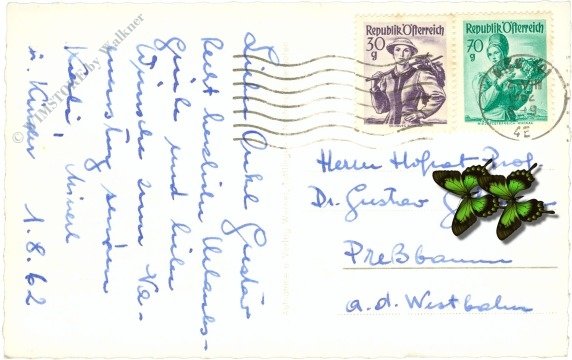 Lieber Onkel Gustav
Recht herzliche Urlaubs-
Grüße und liebe
Wünsche zum Na-
menstag senden
u. Kinder 1.8.62
© STIMSTORE by Walkner
Republik Österreich
30
g
Republik Österreich
70
g
4E
Herrn Hofrat Prof.
Dr. Gustav
Preßbaum
a.d. Westbahn